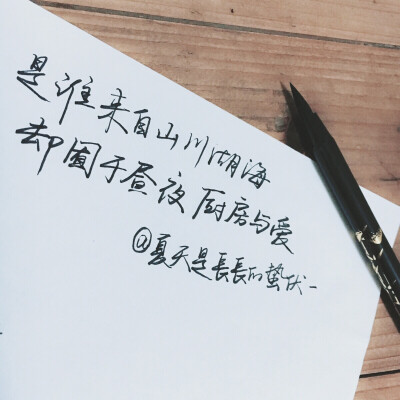 是谁来自山川湖海
却囿于昼夜厨房与爱
@夏天是長長的蛰伏-